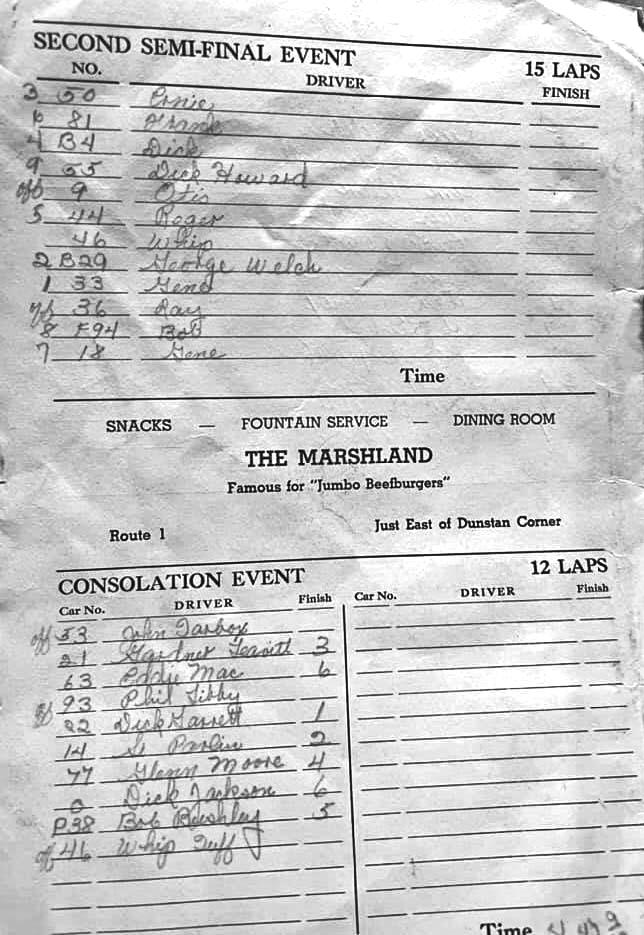 SECOND SEMI-FINAL EVENT 15 LAPS
NO. DRIVER FINISH
3 50 Ernie
6 81
4 B4 Dick
9 55 Dick Howard
off 9 Otis
5 44 Roger
46 Whip
2 B29 George Welch
1 33 Gene
off 36 Ray
8 F94 Bob
7 18 Gene
Time
SNACKS — FOUNTAIN SERVICE — DINING ROOM
THE MARSHLAND
Famous for "Jumbo Beefburgers"
Route 1 Just East of Dunstan Corner
CONSOLATION EVENT 12 LAPS
Car No. DRIVER Finish Car No. DRIVER Finish
off 53 John Tarbox
21 Gardner 3
63 Eddie Mac 6
off 93 Phil Libby
22 Dick Garrett 1
14 2
77 Glenn Moore 4
0 Dick Jackson 6
P38 Bob 5
off 46 Whip Tuff
Time